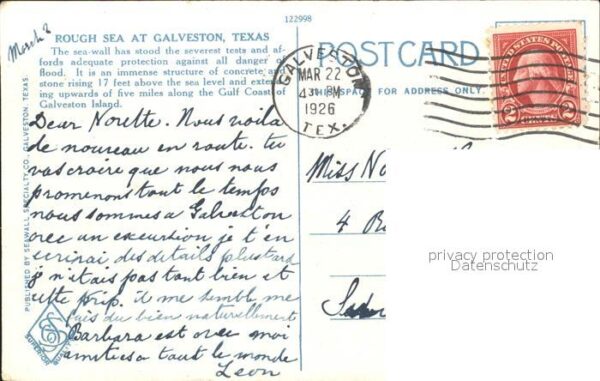 122998
March 2
ROUGH SEA AT GALVESTON, TEXAS
The sea-wall has stood the severest tests and af-
fords adequate protection against all danger of
flood. It is an immense structure of concrete and
stone rising 17 feet above the sea level and extend-
ing upwards of five miles along the Gulf Coast of
Galveston Island.
POST CARD
THIS SPACE FOR ADDRESS ONLY.
GALVESTON
MAR 22
4 PM
1926
TEX.
UNITED STATES POSTAGE
2 CENTS 2
PUBLISHED BY SEAWALL SPECIALTY CO., GALVESTON, TEXAS.
Dear Norette. Nous voila
de nouveau en route. tu
vas croire que nous nous
promenons tout le temps
nous sommes a Galveston
avec un excursion je t'en
ecrirai des details plus tard
je n'etais pas tout bien et
cette trip. il me semble me
fais du bien naturellement
Barbara est avec moi
amities a tout le monde
Leon
Miss No
4
privacy protection
Datenschutz
SUPERIOR QUALITY